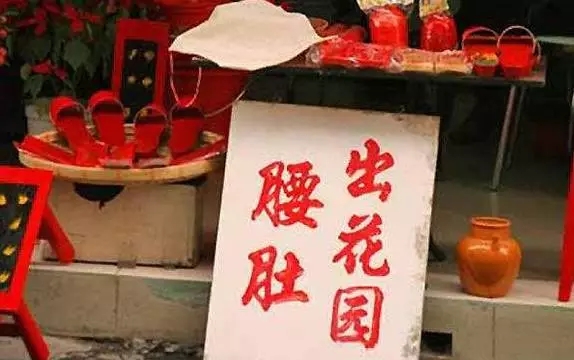 出花园
腰肚